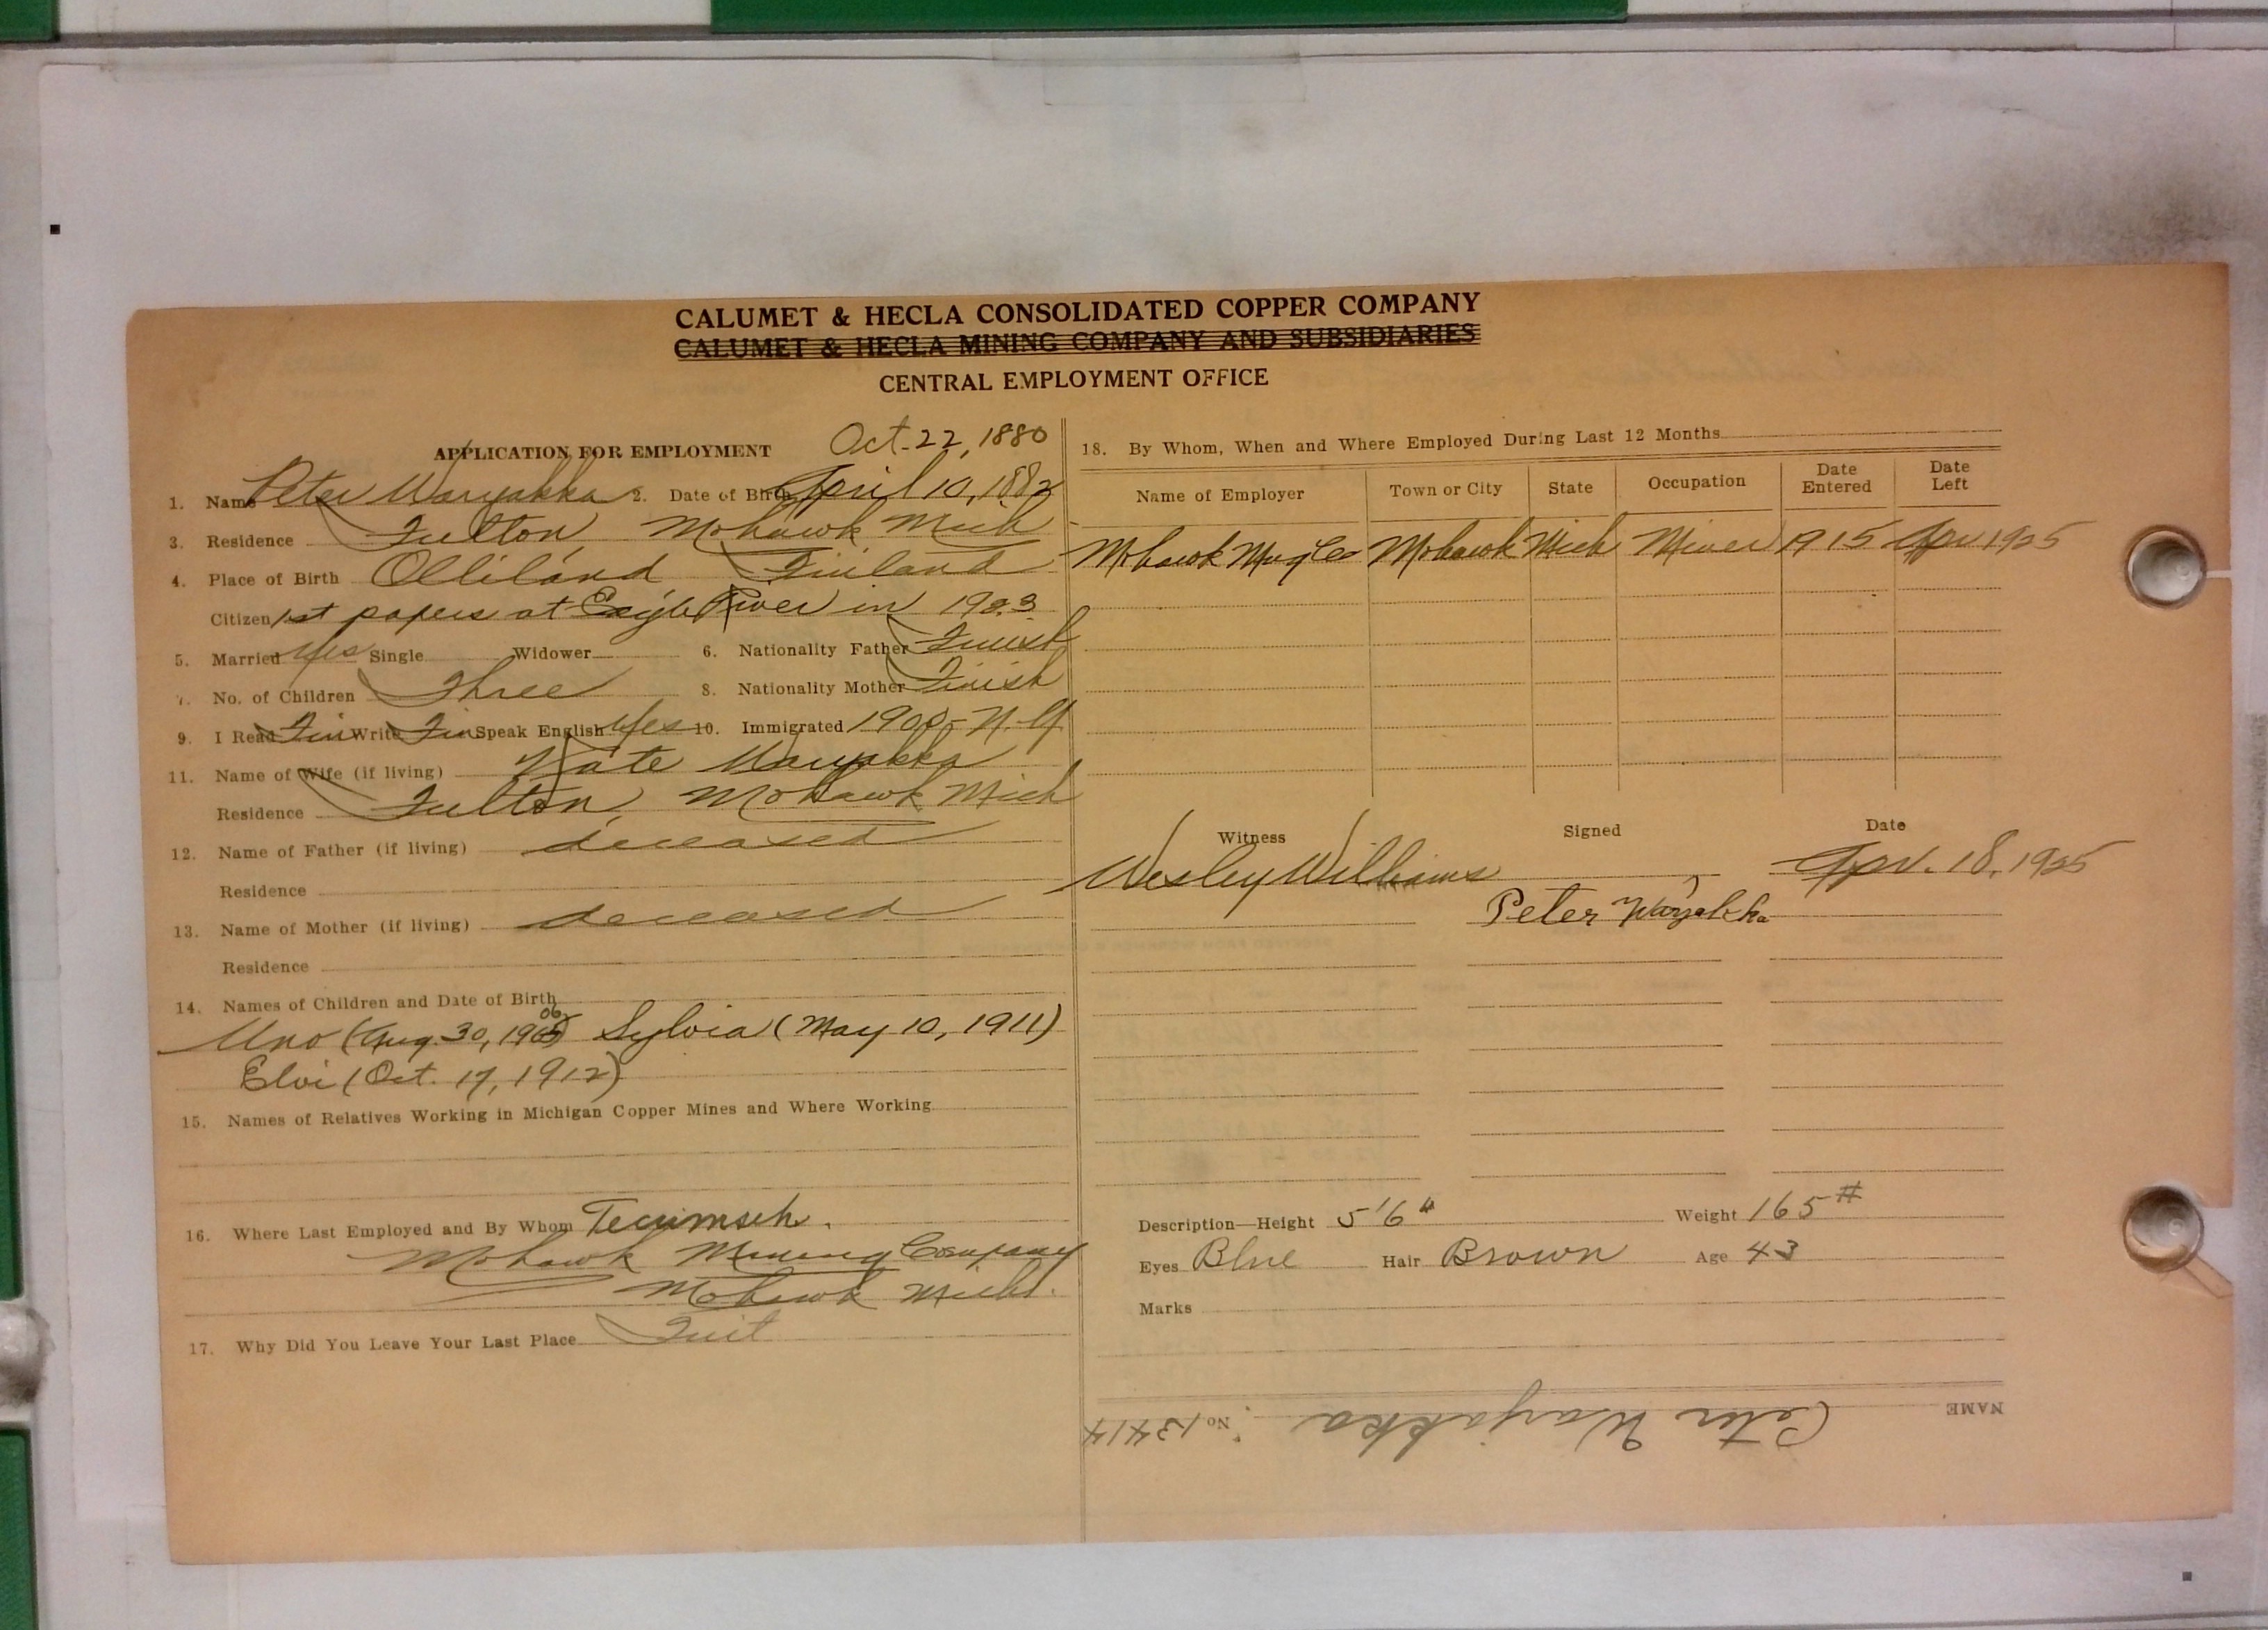 CALUMET & HECLA CONSOLIDATED COPPER COMPANY
CALUMET & HECLA MINING COMPANY AND SUBSIDIARIES
CENTRAL EMPLOYMENT OFFICE
APPLICATION FOR EMPLOYMENT Oct. 22, 1880
1. Name Peter Waryakka 2. Date of Birth April 10, 1882
3. Residence Fulton, Mohawk Mich
4. Place of Birth Finland
Citizen 1st papers at Eagle River in 1923
5. Married Yes Single Widower 6. Nationality Father Finish
7. No. of Children Three 8. Nationality Mother Finish
9. I Read Fin Write Fin Speak English Yes 10. Immigrated N. Y.
11. Name of Wife (if living) Kate Waryakka
Residence Fulton, Mohawk Mich
12. Name of Father (if living) deceased
Residence
13. Name of Mother (if living) deceased
Residence
14. Names of Children and Date of Birth
Uno (Aug. 30, 1906) Sylvia (May 10, 1911)
Elvi (Oct. 17, 1912)
15. Names of Relatives Working in Michigan Copper Mines and Where Working
16. Where Last Employed and By Whom Tecumseh.
Mohawk Mining Company
Mohawk Mich.
17. Why Did You Leave Your Last Place Quit
18. By Whom, When and Where Employed During Last 12 Months
Name of Employer Town or City State Occupation Date Entered Date Left
Mohawk Mng Co Mohawk Mich Miner 1915 Apr 1925
Witness Signed Date
Wesley Williams Apr. 18, 1925
Peter Waryakka
Description—Height 5'6" Weight 165#
Eyes Blue Hair Brown Age 43
Marks
NAME Peter Waryakka No. 13414